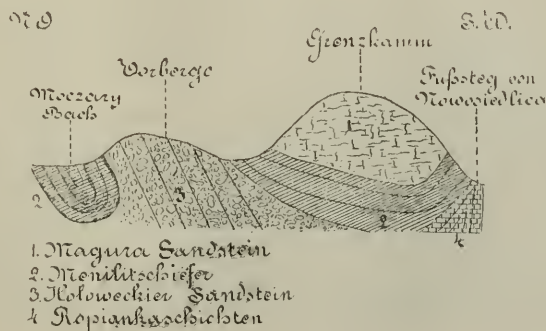 N O
S. W.
Grenzkamm
Vorberge
Fußsteg von
Nowosiedlica
Moczary
Bach
1
2
3
2
4
1. Magura Sandstein
2. Menilitschiefer
3. Holoweckier Sandstein
4 Ropiankaschichten